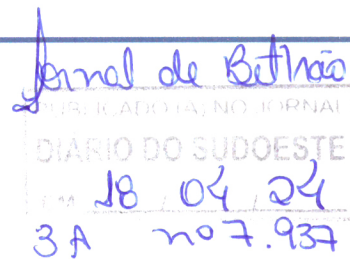 Jornal de Beltrão
PUBLICADO(A) NO JORNAL
DIÁRIO DO SUDOESTE
EM 18 / 04 / 24
3A nº 7.937